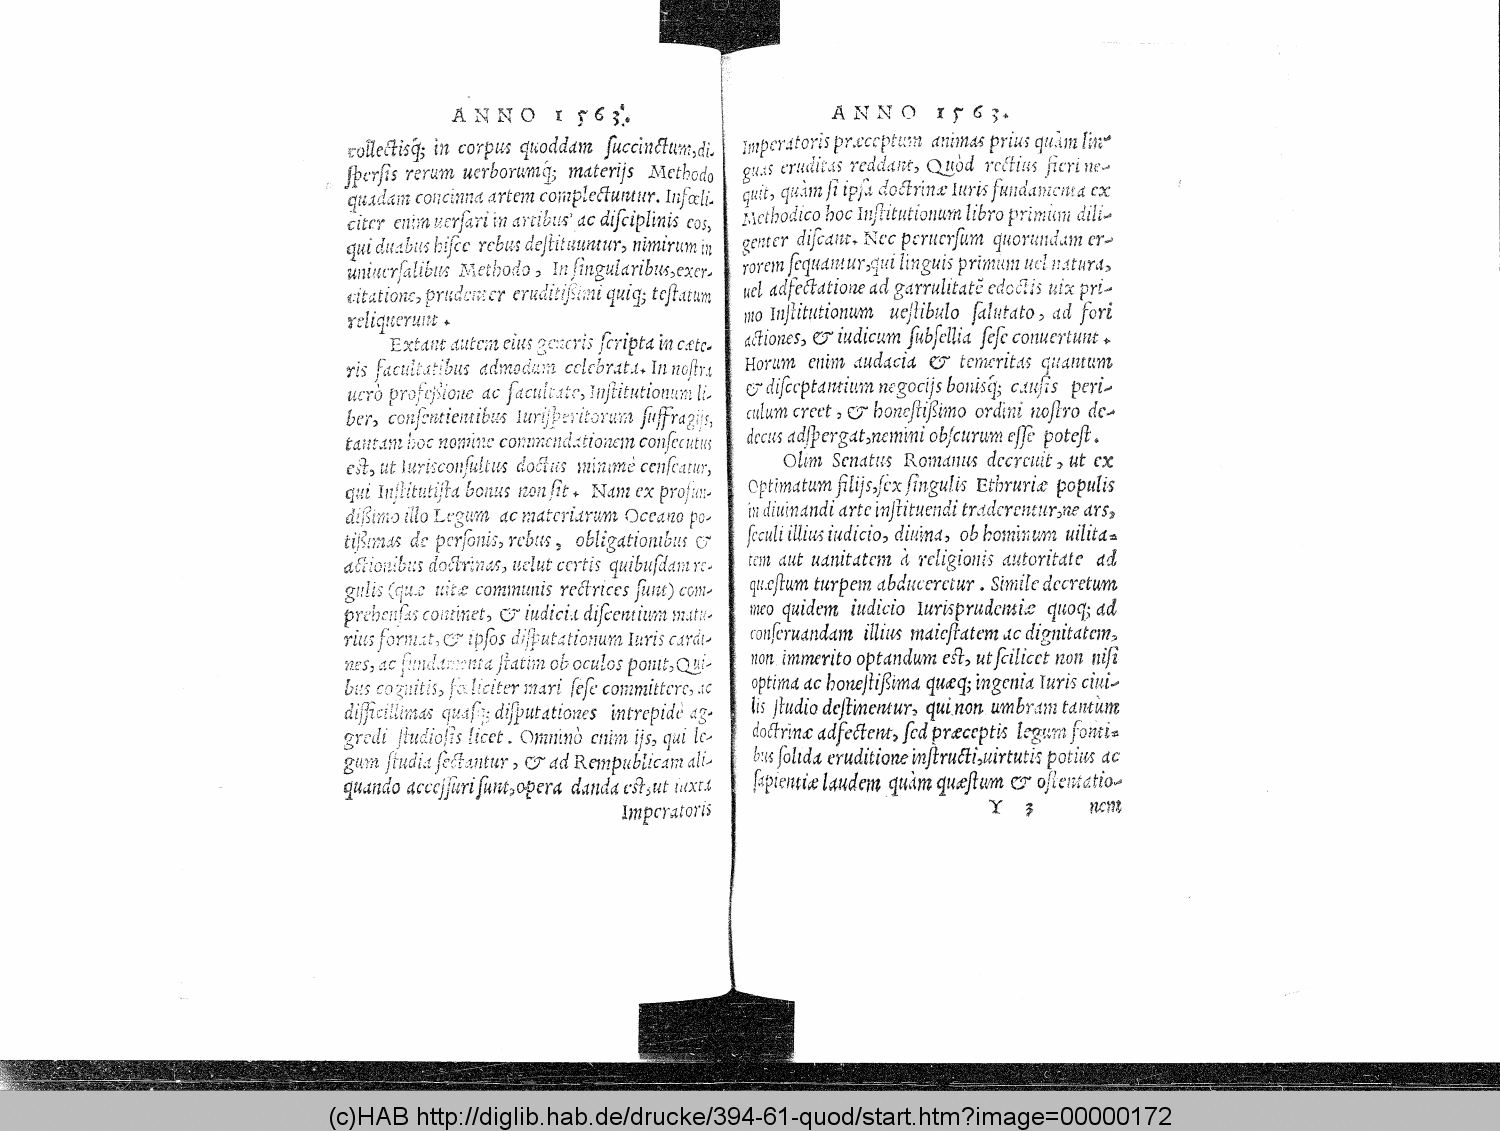 ANNO 1563.
collectisq́; in corpus quoddam ſuccinctum, di-
ſperſis rerum uerborumq́; materijs Methodo
quadam concinna artem complectuntur. Infœli-
citer enim uerſari in artibus ac diſciplinis eos,
qui duabus hiſce rebus deſtituuntur, nimirum in
uniuerſalibus Methodo, In ſingularibus, exer-
citatione, prudenter eruditißimi quiq; teſtatum
reliquerunt.
Extant autem eius generis ſcripta in cæte-
ris facultatibus admodum celebrata. In noſtra
uerò profeßione ac facultate, Inſtitutionum li-
ber, conſentientibus Iuriſperitorum ſuffragijs,
tantam hoc nomine commendationem conſecutus
est, ut Iurisconſultus doctus minimè cenſeatur,
qui Inſtitutiſta bonus non ſit. Nam ex profun-
dißimo illo Legum ac materiarum Oceano po-
tißimas de perſonis, rebus, obligationibus &
actionibus doctrinas, uelut certis quibuſdam re-
gulis (quæ uitæ communis rectrices ſunt) com-
prehenſas continet, & iudicia diſcentium matu-
rius format, & ipſos diſputationum Iuris cardi-
nes, ac fundamenta ſtatim ob oculos ponit, Qui-
bus cognitis, fœliciter mari ſeſe committere, ac
difficillimas quaſq; diſputationes intrepidè ag-
gredi ſtudioſis licet. Omninò enim ijs, qui le-
gum ſtudia ſectantur, & ad Rempublicam ali-
quando acceſſuri ſunt, opera danda est, ut iuxta
Imperatoris
ANNO 1563.
Imperatoris præceptum animas prius quàm lin-
guas eruditas reddant, Quòd rectius fieri ne-
quit, quàm ſi ipſa doctrinæ Iuris fundamenta ex
Methodico hoc Inſtitutionum libro primùm dili-
genter diſcant. Nec peruerſum quorundam er-
rorem ſequantur, qui linguis primùm uel natura,
uel adfectatione ad garrulitatẽ edoctis uix pri-
mo Inſtitutionum ueſtibulo ſalutato, ad fori
actiones, & iudicum ſubſellia ſeſe conuertunt.
Horum enim audacia & temeritas quantum
& diſceptantium negocijs bonisq́; cauſis peri-
culum creet, & honeſtißimo ordini noſtro de-
decus adſpergat, nemini obſcurum eſſe poteſt.
Olim Senatus Romanus decreuit, ut ex
Optimatum filijs, ſex ſingulis Ethruriæ populis
in diuinandi arte inſtituendi traderentur, ne ars,
ſeculi illius iudicio, diuina, ob hominum uilita-
tem aut uanitatem à religionis autoritate ad
quæſtum turpem abduceretur. Simile decretum
meo quidem iudicio Iurisprudentiæ quoq; ad
conſeruandam illius maieſtatem ac dignitatem,
non immerito optandum est, ut ſcilicet non niſi
optima ac honeſtißima quæq; ingenia Iuris ciui-
lis ſtudio deſtinentur, qui non umbram tantùm
doctrinæ adfectent, ſed præceptis legum fonti-
bus ſolida eruditione inſtructi, uirtutis potius ac
ſapientiæ laudem quàm quæſtum & oſtentatio-
Y 3 nem
(c)HAB http://diglib.hab.de/drucke/394-61-quod/start.htm?image=00000172